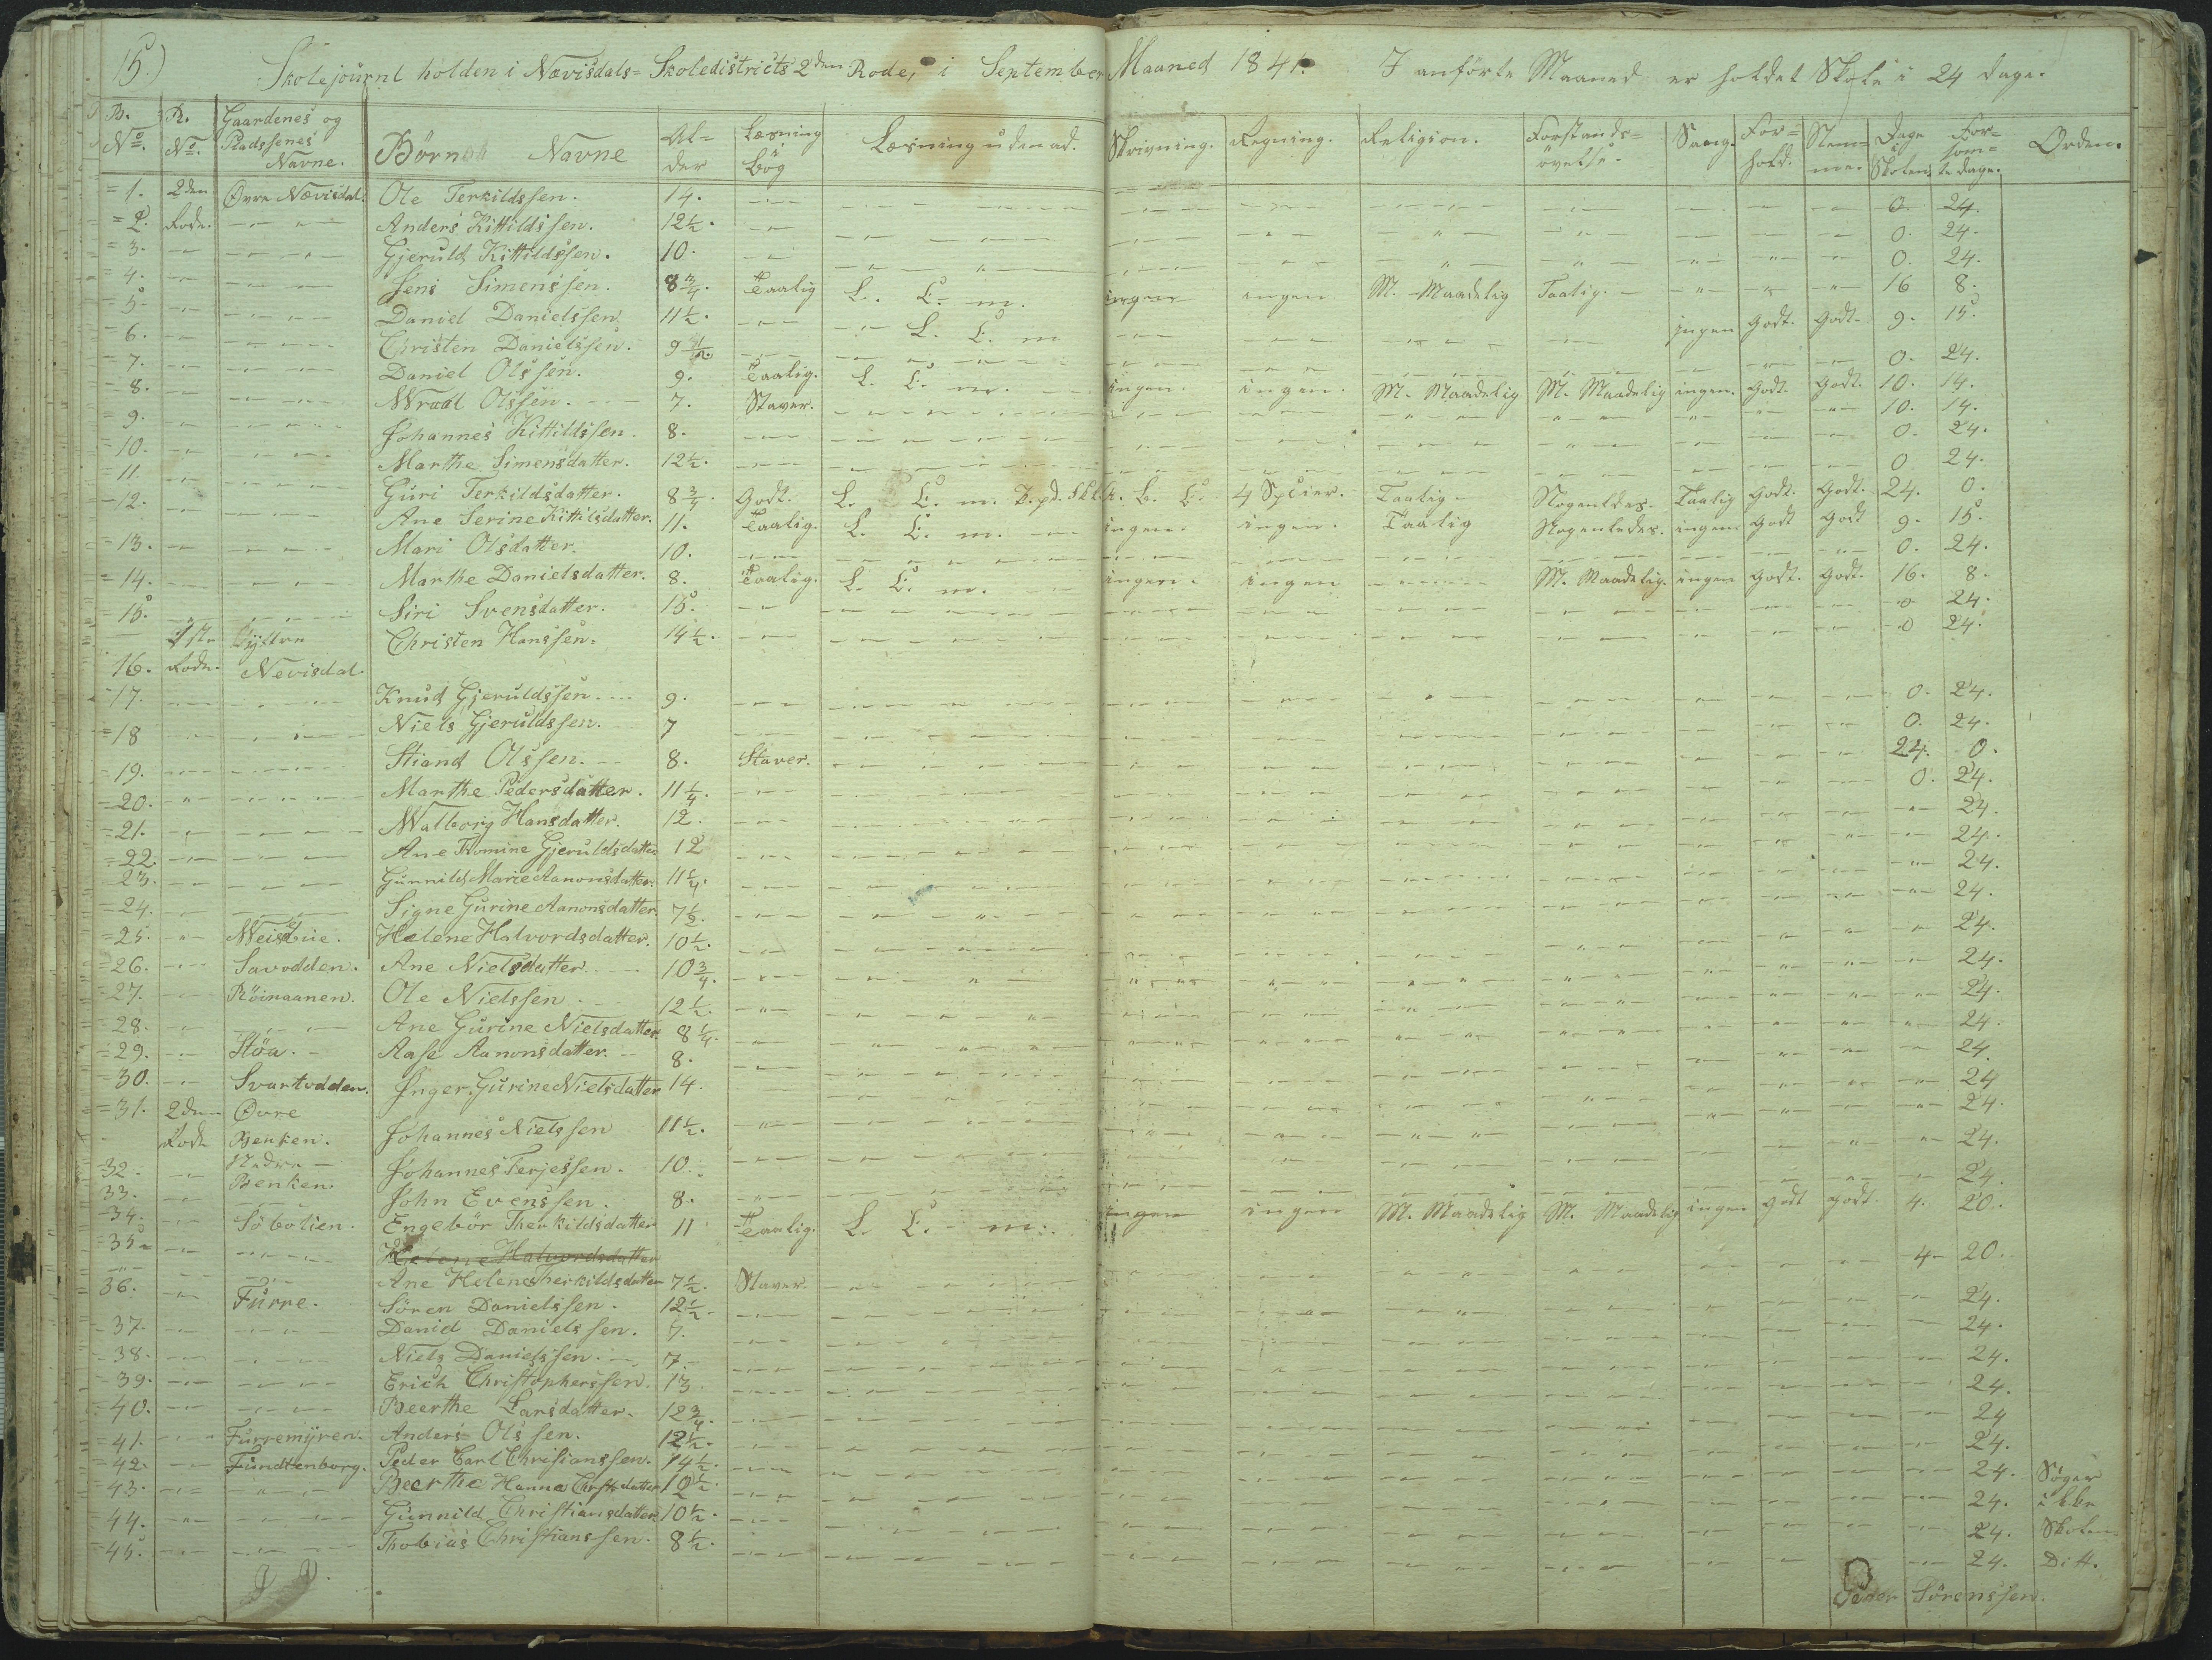 15.) Skolejournl holden i Nævisdals= Skoledistricts 2den Rode, i September Maaned 1841. I anförte Maaned er holdet Skole i 24 dage.
B. No. R. No. Gaardenes og Pladssenes Navne. Börnes Navne Al=der Læsning i bog Læsning udenad. Skrivning. Regning. Religion. Forstands=övelse. Sang. For=hold. Stem=me. Dage i Skolen. For=söm=te dage. Orden.
1. 2den Øvre Nævisdal. Ole Terkildssen. 14. 0. 24.
2. Rode. Anders Kittildssen. 12½. 0. 24.
3. Gjeruld Kittildssen. 10. 0. 24.
4. Jens Simenssen. 8¾. Taalig L. C. m. ingen ingen M. Maadelig Taalig. 16 8.
5. Daniel Danielssen. 11½. L. C. m ingen Godt. Godt. 9. 15.
6. Christen Danielssen. 9½. 0. 24.
7. Daniel Olssen. 9. Taalig. L. C. m. ingen. ingen. M. Maadelig M. Maadelig ingen. Godt. Godt. 10. 14.
8. Wraal Olssen. 7. Staver. 10. 14.
9. Johannes Kittildssen. 8. 0. 24.
10. Marthe Simensdatter. 12½. 0. 24.
11. Guri Terkildsdatter. 8¾. Godt. L. C. m. 4 Spcier. Taalig Nogenledes. Taalig Godt. Godt. 24. 0.
12. Ane Serine Kittilsdatter. 11. Taalig. L. C. m. ingen. ingen. Taalig Nogenledes. ingen Godt Godt 9. 15.
13. Mari Olsdatter. 10. 0. 24.
14. Marthe Danielsdatter. 8. Taalig. L. C. m. ingen. ingen M. Maadelig. ingen Godt. Godt. 16. 8.
15. Siri Svensdatter. 15. 0 24.
1ste Dyttre Christen Hanssen. 14½. 0 24.
16. Rode. Nevisdal.
17. Knud Gjeruldssen. 9. 0. 24.
Niels Gjeruldssen. 7 0. 24.
18 Stiand Olssen. 8. Staver. 24. 0.
19. Marthe Pedersdatter. 11¼. 0. 24.
20. Walborg Hansdatter. 12. 24.
21. Ane Tomine Gjeruldsdatter 12 24.
22. Gunnild Marie Aanonsdatter. 11¼. 24.
23. Signe Gurine Aanonsdatter. 7½. 24.
24.
25. Weisbue. Helene Halvordsdatter. 10½. 24.
26. Savodden. Ane Nielsdatter. 10¾. 24.
27. Röinaanen. Ole Nielssen. 12½. 24.
28. Ane Gurine Nielsdatter 8¼. 24.
29. Stöa. Aase Aanonsdatter. 8. 24.
30. Svartodden. Inger Gurine Nielsdatter 14. 24
31. 2den Øvre Johannes Nielssen 11½. 24.
Rode Benken.
32. Nedre Benken. Johannes Terjessen. 10. 24.
33. John Evenssen. 8. 24.
34. Söbölien. Engebör Therkildsdatter 11 Taalig. L. C. m. ingen ingen M. Maadelig M. Maadelig ingen Godt Godt. 4. 20.
35. Helene Halvordsdatter
Ane Helene Therkildsdatter 7½. Staver. 4 20.
36. Furre. Sören Danielssen. 12½. 24.
37. Daniel Danielssen. 9. 24.
38. Niels Danielssen. 7. 24.
39. Erich Christopherssen. 13. 24.
40. Beerthe Larsdatter. 12¾. 24
41. Furremyren. Anders Olssen. 12½. 24.
42. Fundtenborg. Peder Carl Christianssen. 14½. 24. Søger
43. Beerthe Hanna Chrstsdatter 12½. 24. ikke
44. Gunnild Christiansdatter 10½. 24. Skolen
45. Thobias Christianssen. 8½. 24. Ditt.
Peder Sörenssen.